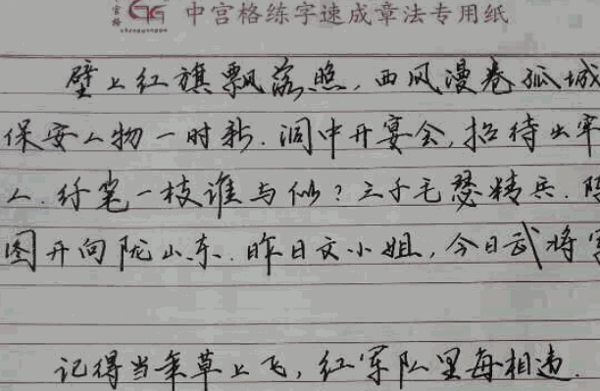 中宫格练字速成章法专用纸
壁上红旗飘落照,西风漫卷孤城
保安人物一时新.洞中开宴会,招待出牢
人.纤笔一枝谁与似?三千毛瑟精兵.阵
图开向陇山东.昨日文小姐,今日武将军
记得当年草上飞,红军队里每相违.